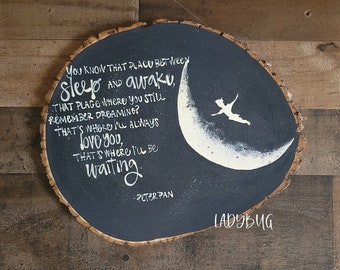 YOU KNOW THAT PLACE BETWEEN
SLEEP AND AWAKE,
THAT PLACE WHERE YOU STILL
REMEMBER DREAMING?
THAT'S WHERE I'LL ALWAYS
LOVE YOU,
THAT'S WHERE I'LL BE
WAITING
-PETER PAN
LADYBUG